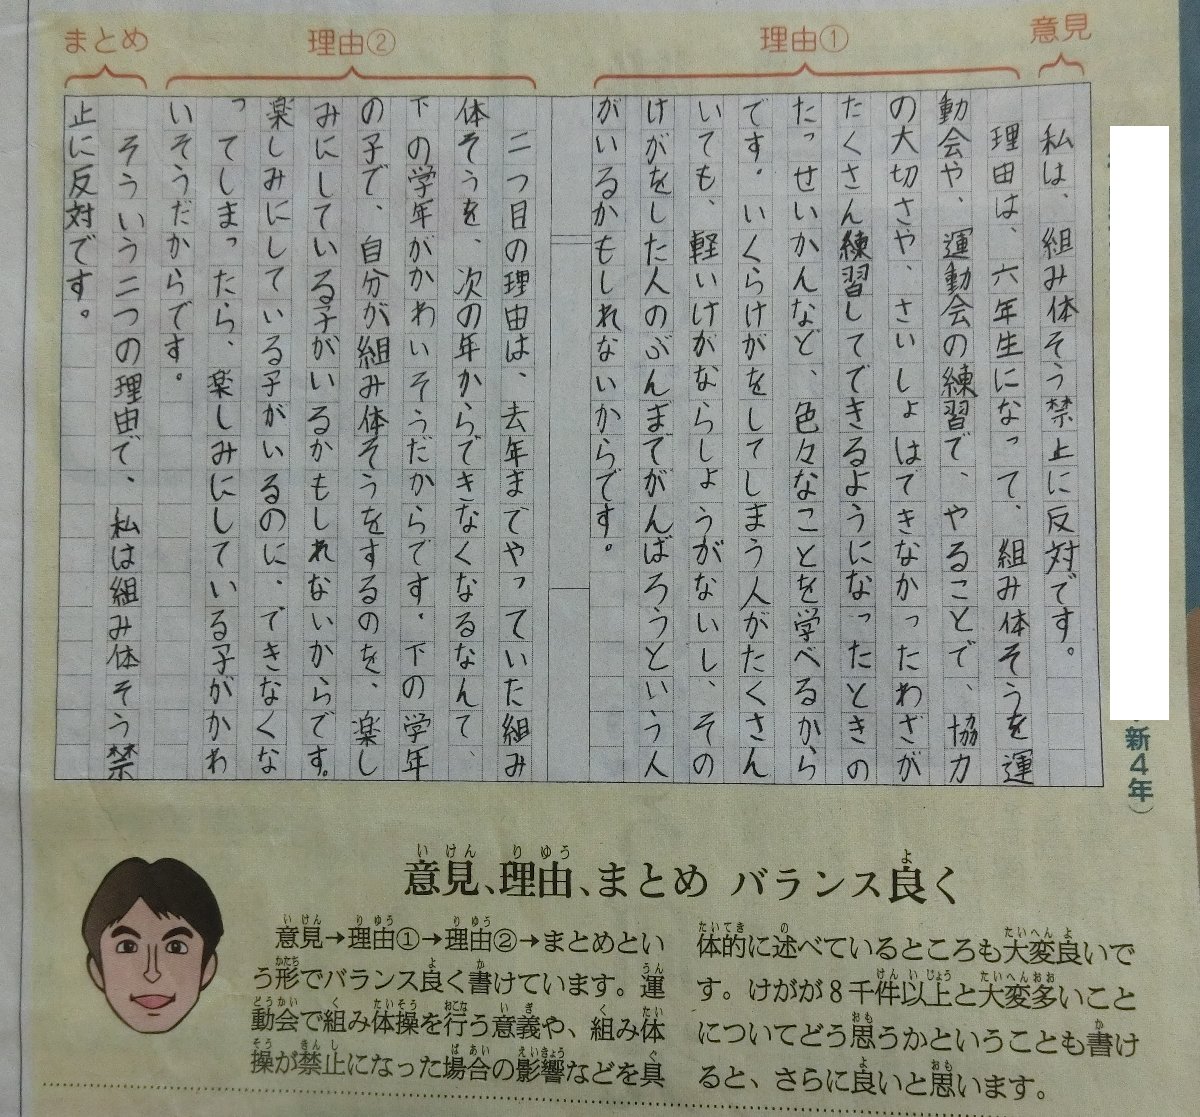 意見
理由①
理由②
まとめ
私は、組み体そう禁止に反対です。
理由は、六年生になって、組み体そうを運
動会や、運動会の練習で、やることで、協力
の大切さや、さいしょはできなかったわざが
たくさん練習してできるようになったときの
たっせいかんなど、色々なことを学べるから
です。いくらけがをしてしまう人がたくさん
いても、軽いけがならしょうがないし、その
けがをした人のぶんまでがんばろうという人
がいるかもしれないからです。
二つ目の理由は、去年までやっていた組み
体そうを、次の年からできなくなるなんて、
下の学年がかわいそうだからです。下の学年
の子で、自分が組み体そうをするのを、楽し
みにしている子がいるかもしれないからです。
楽しみにしている子がいるのに、できなくな
ってしまったら、楽しみにしている子がかわ
いそうだからです。
そういう二つの理由で、私は組み体そう禁
止に反対です。
新4年）
意見、理由、まとめ バランス良く
意見→理由①→理由②→まとめとい
う形でバランス良く書けています。運
動会で組み体操を行う意義や、組み体
操が禁止になった場合の影響などを具
体的に述べているところも大変良いで
す。けがが8千件以上と大変多いこと
についてどう思うかということも書け
ると、さらに良いと思います。